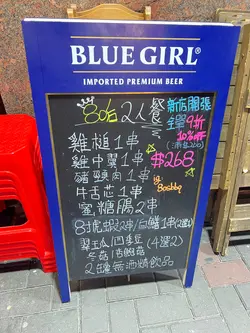 BLUE GIRL®
IMPORTED PREMIUM BEER
80's 2人餐
新店開張
全單9折
10% OFF
(滿$200)
雞槌1串
雞中翼1串
$268
豬頸肉1串
ig:
80shbq
牛舌芯1串
蜜糖腸2串
8頭虎蝦2串/白鱔1串(2選1)
翠玉瓜/四季豆
(4選2)
冬菇/杏鮑菇
2罐無酒精飲品